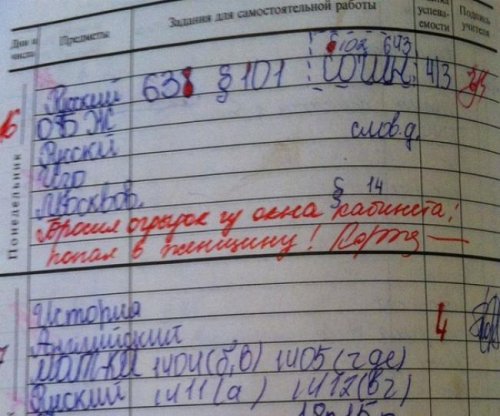 Дни и числа Предметы Задания для самостоятельной работы успеваемости Подпись учителя
§ 102 643
16 Русский 638 § 101 сочин. 4/3
ОБЖ
Русский слов.д.
Изо
Москвов. § 14
Понедельник
Бросил огрызок из окна кабинета!
попал в женщину!
История
Английский 4
МАТ-КА 1404(б,в) 1405(г де)
Русский 1411(а) 1412(в г)